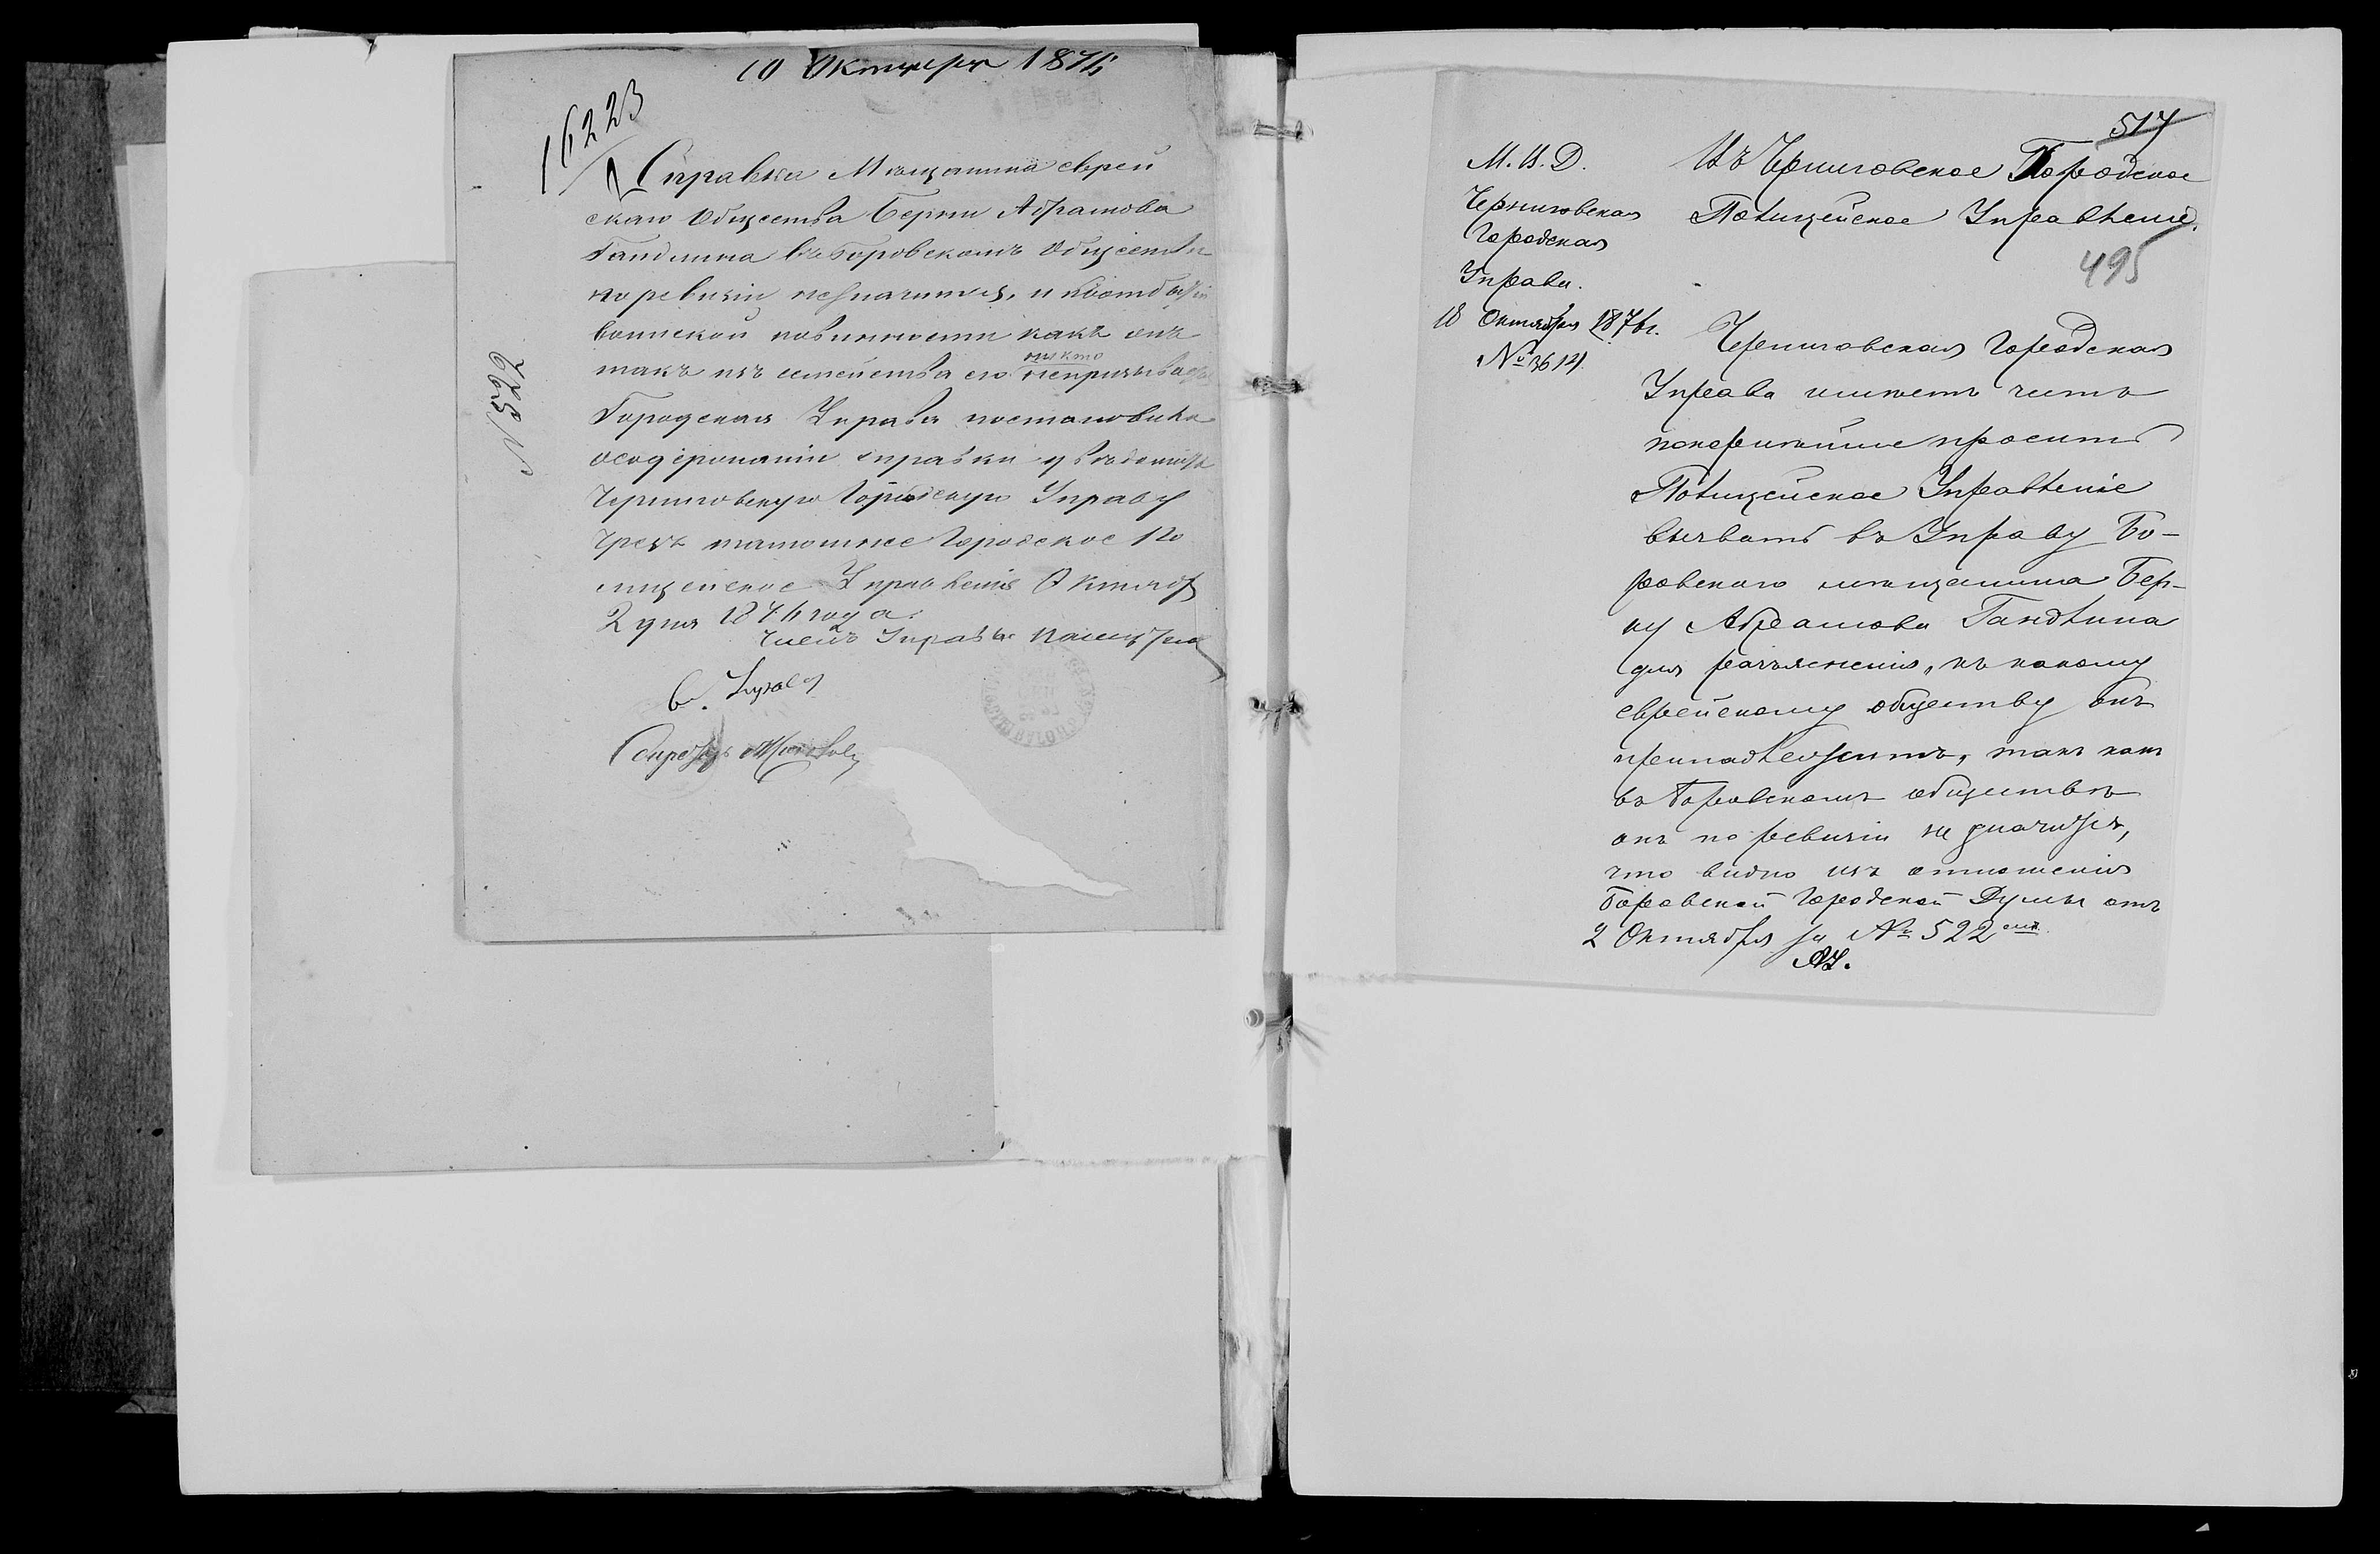 10 Октября 1876
16223
Справка Мещанина еврей
скаго Общества Берки Абрамова
Гандлина въ Боровскомъ Обществе
по ревизіи незначится, и къ отбытію
воинской повинности какъ онъ
никто
такъ изъ семейства его непризывался
Городская Управа постановила
о содержаніи справки уведомить
Черниговскую Городскую Управу
чрезъ тамошнее Городское По
лицейское Управленіе Октября
2 дня 1876 года.
Членъ Управы
Секретарь
№ 522
517
495
М. В. Д.
Черниговская
Городская
Управа.
18 Октября 1876 г.
№ 3614
Въ Черниговское Городское
Полицейское Управленіе.
Черниговская Городская
Управа имѣетъ честь
покорнѣйше просить
Полицейское Управленіе
вызвать въ Управу Бо-
ровскаго мѣщанина Бер-
ку Абрамова Гандлина
для разъясненія, къ какому
еврейскому обществу онъ
принадлежитъ, такъ какъ
въ Боровскомъ обществѣ
онъ по ревизіи не значится,
что видно изъ отношенія
Боровской Городской Думы отъ
2 Октября за № 522